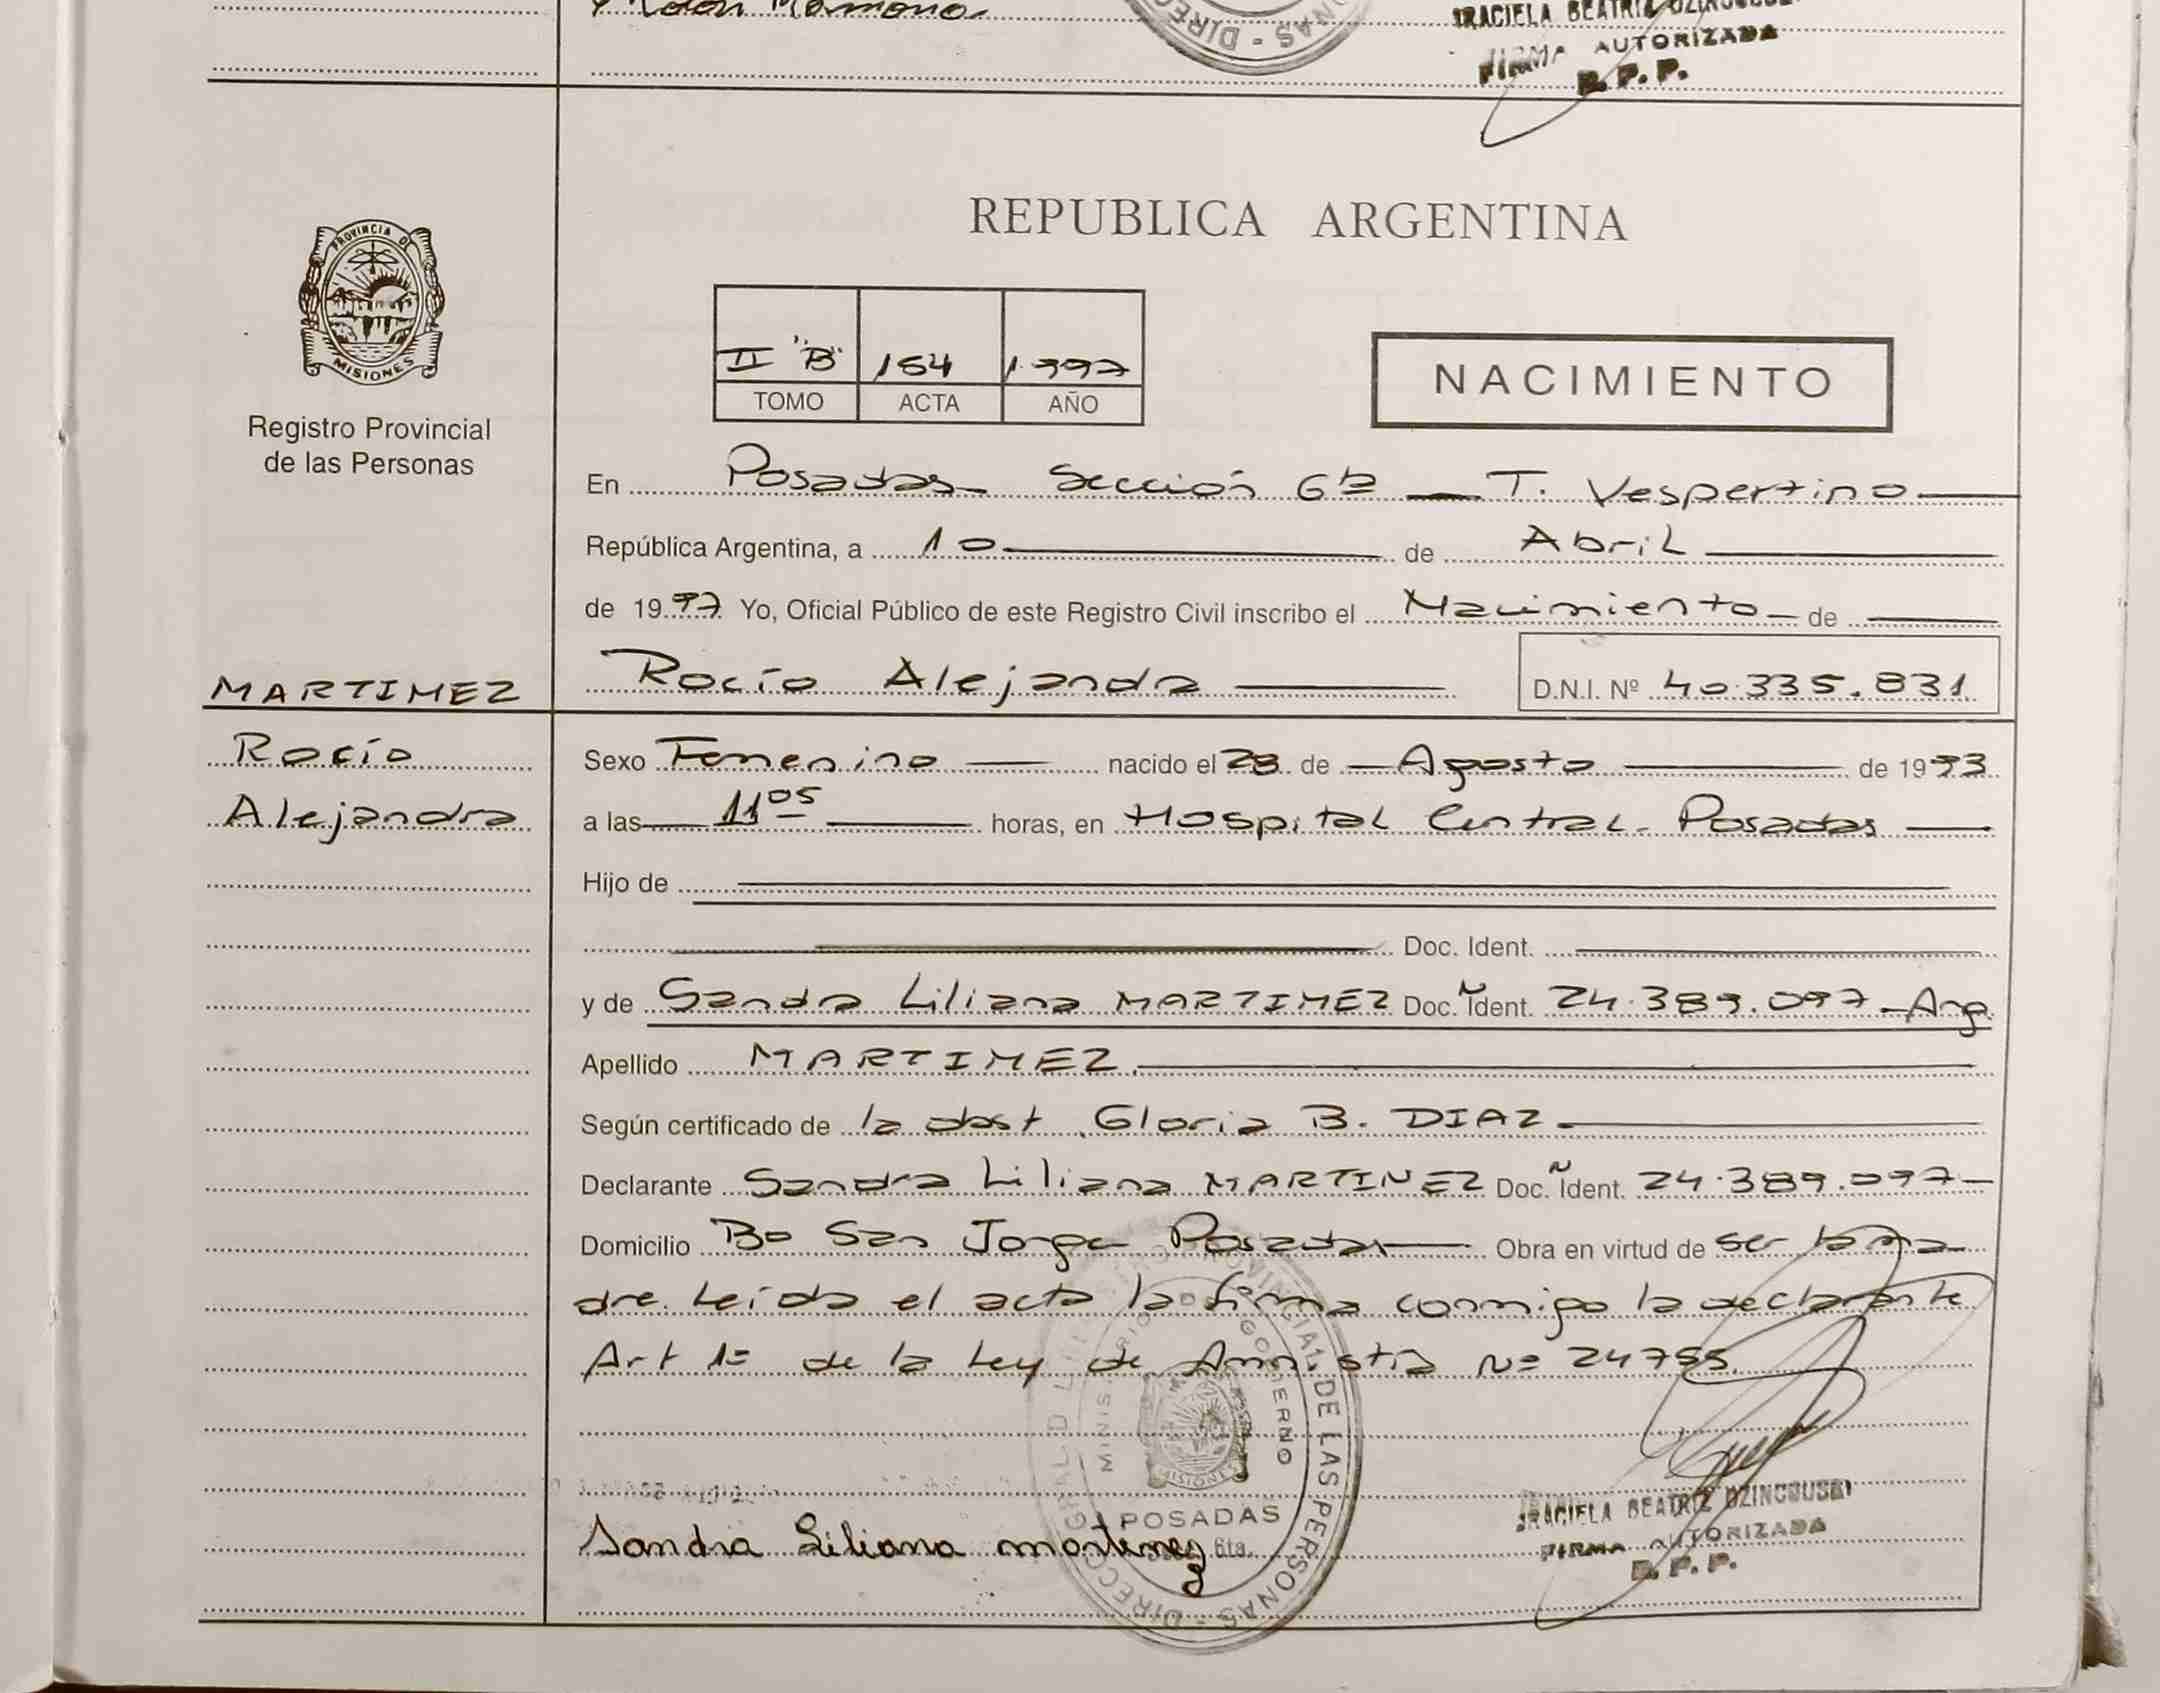 GRACIELA BEATRIZ
FIRMA AUTORIZADA
R. P. P.
PROVINCIA DE
MISIONES
Registro Provincial
de las Personas
REPUBLICA ARGENTINA
II "B" 154 1997
TOMO ACTA AÑO
NACIMIENTO
En Posadas Sección 6ta T. Vespertino
República Argentina, a 10 de Abril
de 1997 Yo, Oficial Público de este Registro Civil inscribo el Nacimiento de
MARTINEZ Rocío Alejandra D.N.I. Nº 40.335.831
Rocío
Alejandra
Sexo Femenino nacido el 28 de Agosto de 1993
a las 11 05 horas, en Hospital Central Posadas
Hijo de
Doc. Ident.
y de Sandra Liliana MARTINEZ Doc. Ident. 24.389.097 Arg.
Apellido MARTINEZ
Según certificado de la obst. Gloria B. DIAZ
Declarante Sandra Liliana MARTINEZ Doc. Ident. 24.389.097
Domicilio Bo San Jorge Posadas Obra en virtud de ser la ma
dre. Leída el acta la firma conmigo la declarante
Art 1º de la Ley de Amnistía Nº 24755
DIRECC GRAL D L REGISTRO PROVINCIAL DE LAS PERSONAS
MINISTERIO GOBIERNO
MISIONES
POSADAS
6ta.
Sandra Liliana martinez
GRACIELA BEATRIZ
FIRMA AUTORIZADA
R. P. P.